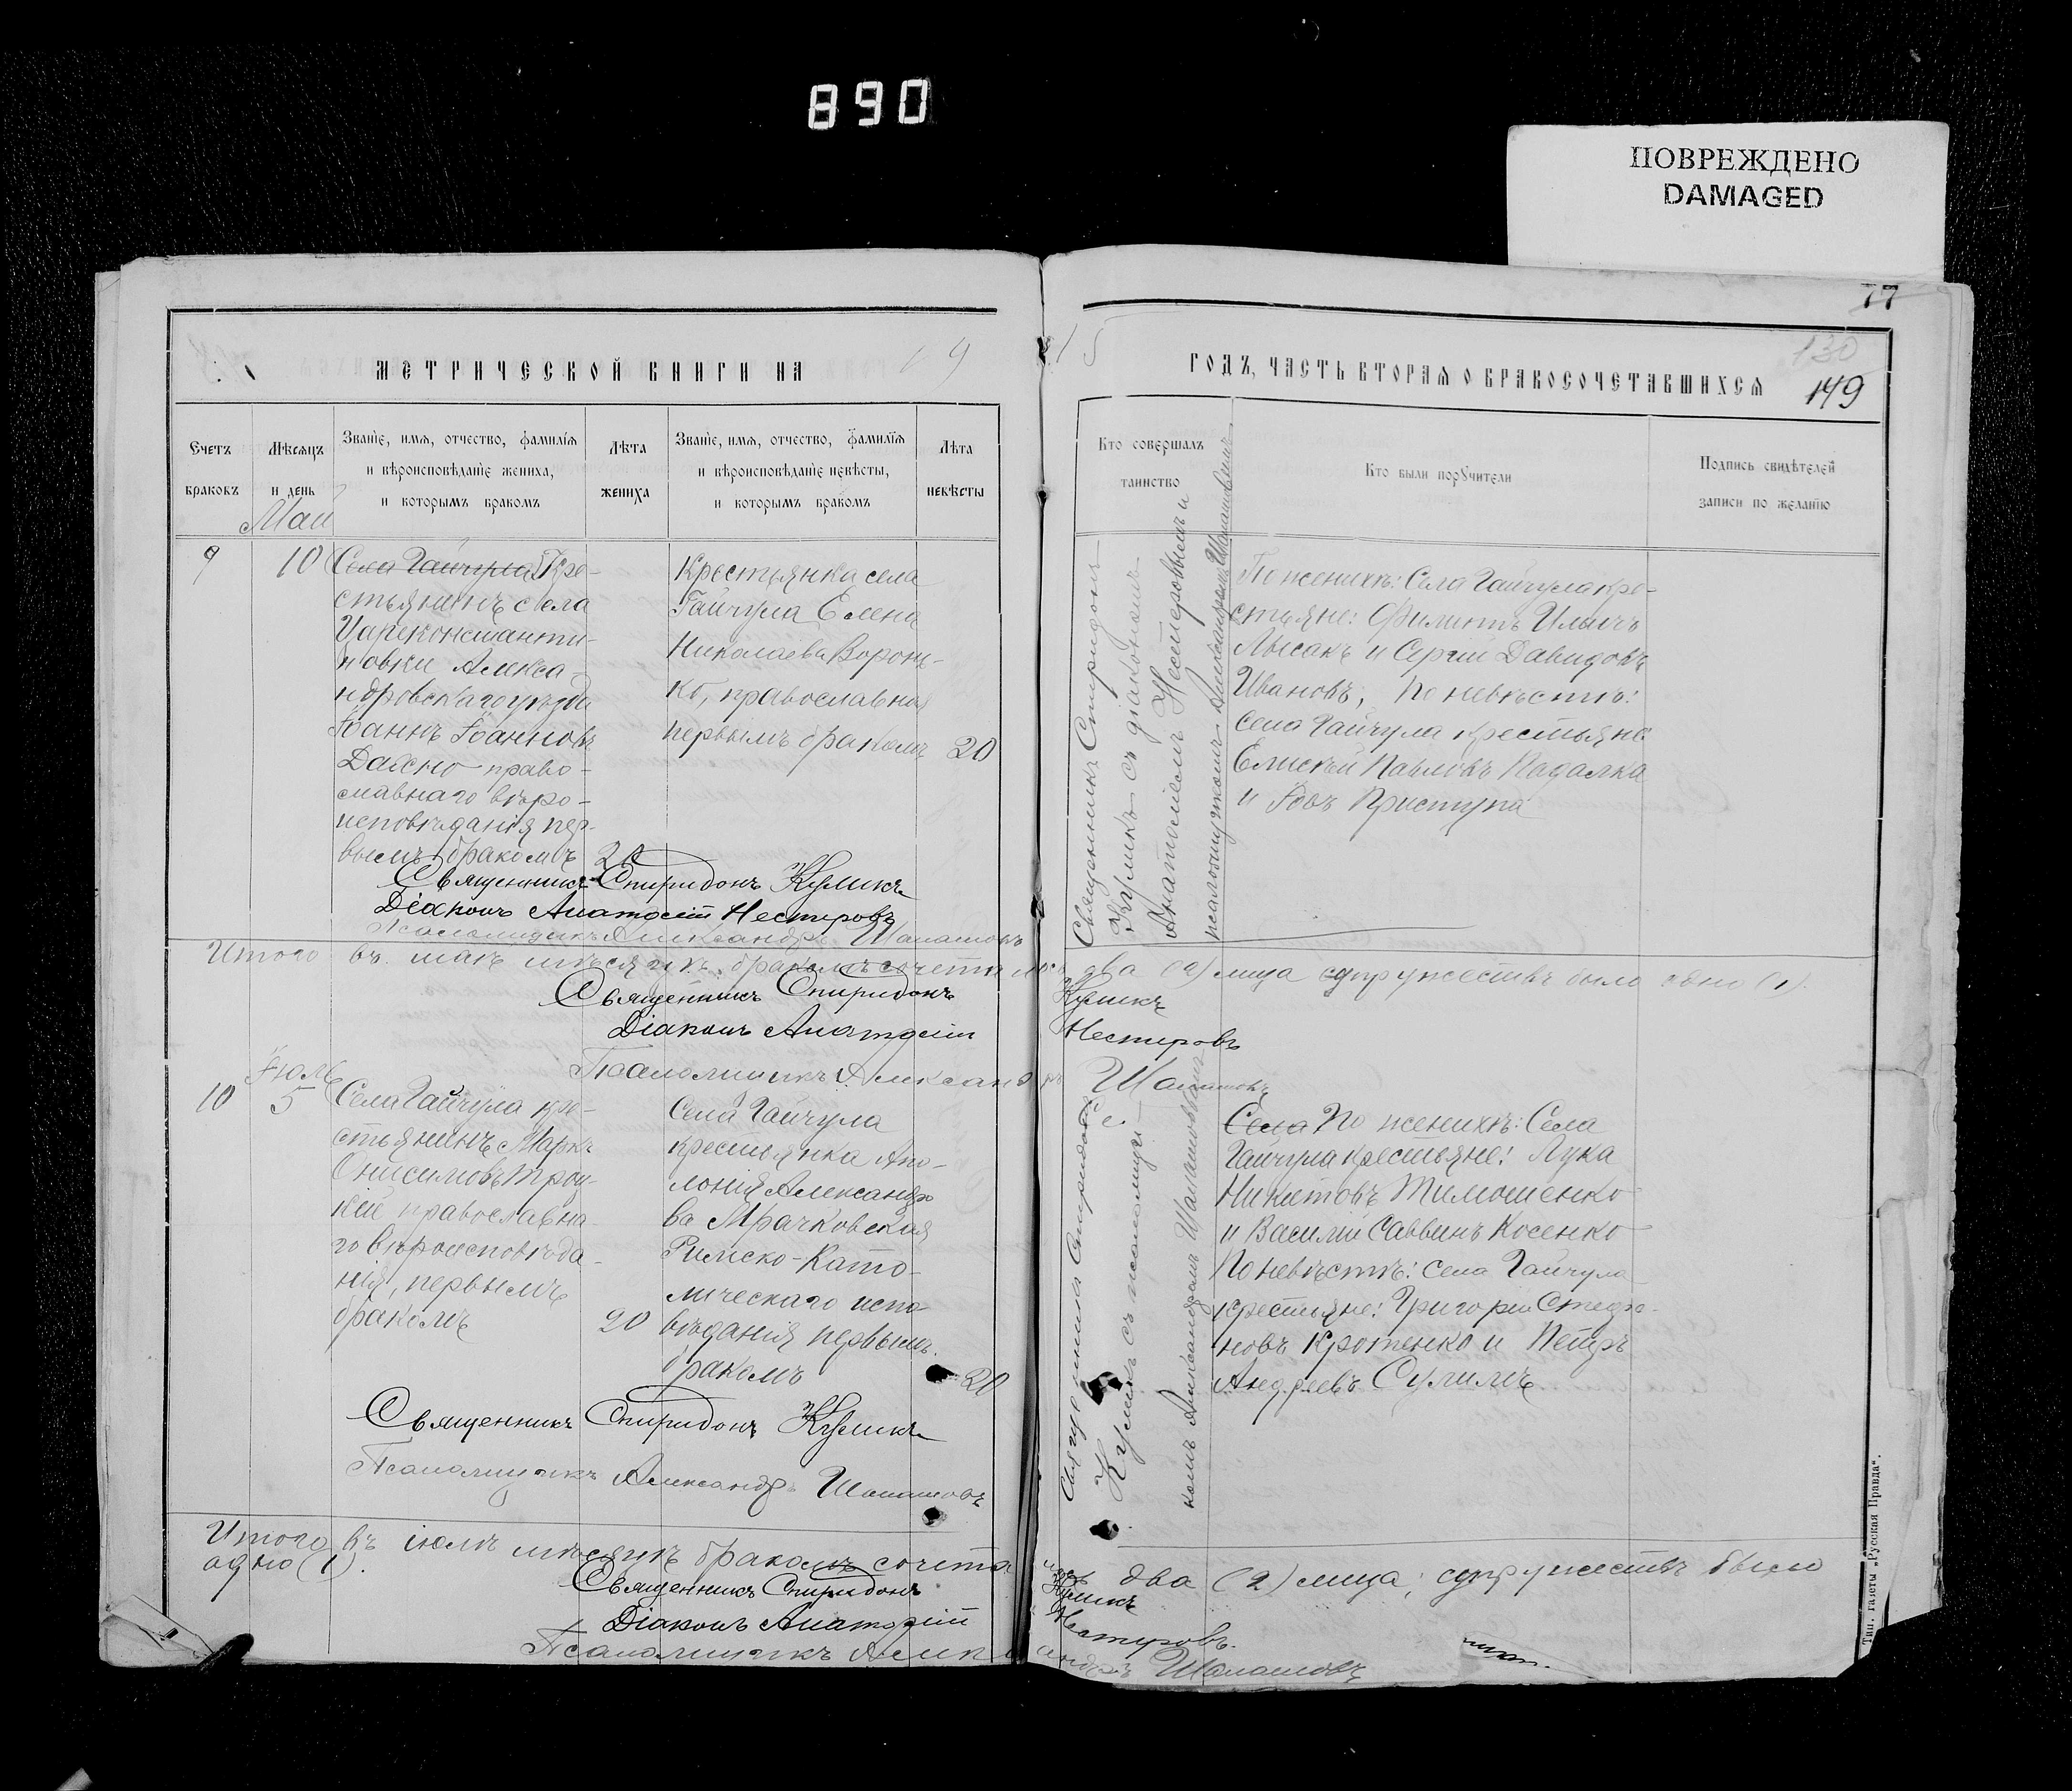 890
ПОВРЕЖДЕНО
DAMAGED
77
МЕТРИЧЕСКОЙ КНИГИ НА 19
15 ГОДЪ, ЧАСТЬ ВТОРАЯ О БРАКОСОЧЕТАВШИХСЯ
130
149
Счетъ
браковъ
Мѣсяцъ
и день
Званіе, имя, отчество, фамилія
и вѣроисповѣданіе жениха,
и которымъ бракомъ
Лѣта
жениха
Званіе, имя, отчество, фамилія
и вѣроисповѣданіе невѣсты,
и которымъ бракомъ
Лѣта
невѣсты
Кто совершалъ
таинство
Кто были поручители
Подпись свидѣтелей
записи по желанію
Май
9
10
Села Гайчула Кре-
стьянинъ села
Цареконстанти-
новки Алекса-
ндровскаго уѣзда
Іоаннъ Іоанновъ
Дахно право-
славнаго вѣро-
исповѣданія пер-
вымъ бракомъ
Крестьянка села
Гайчула Елена
Николаева Ворон-
ко, православная
первымъ бракомъ
20
Священникъ Спиридонъ
Куликъ съ діакономъ
Анатоліемъ Нестеровымъ и
псаломщикомъ Александромъ
По женихѣ: Села Гайчула кре-
стьяне: Филиппъ Ильичъ
Лысакъ и Сергій Давидовъ
Ивановъ, По невѣстѣ:
села Гайчула крестьяне
Елисѣй Павловъ Падалка
и Іовъ Приступа
Священникъ Спиридонъ Куликъ
Діаконъ Анатолій Нестеровъ
Псаломщикъ Александръ
Итого въ маѣ мѣсяцѣ бракомъ сочеталось два (2) лица супружествъ было одно (1).
Священникъ Спиридонъ Куликъ
Діаконъ Анатолій Нестеровъ
Псаломщикъ Александръ
Іюль
10
5
Села Гайчула кре-
стьянинъ Маркъ
Онисимовъ Троц-
кій православна-
го вѣроисповѣда-
нія, первымъ
бракомъ
20
Села Гайчула
крестьянка Апо-
лонія Александро
ва Мрачковская
Римско-Като-
лическаго испо
вѣданія первымъ
бракомъ
20
Куликъ съ псаломщи-
комъ Александромъ
Села По женихѣ: Села
Гайчула крестьяне: Лука
Никитовъ Тимошенко
и Василій Саввинъ Косенко
По невѣстѣ: села Гайчула
крестьяне: Григорій Стефа-
новъ Кротенко и Петръ
Андреевъ Сулимъ
Священникъ Спиридонъ Куликъ
Псаломщикъ Александръ
Итого въ іюлѣ мѣсяцѣ бракомъ сочеталось два (2) лица; супружествъ было
одно (1).
Священникъ Спиридонъ Куликъ
Діаконъ Анатолій Нестеровъ
Псаломщикъ Александръ
Тип. газеты „Русская Правда“.